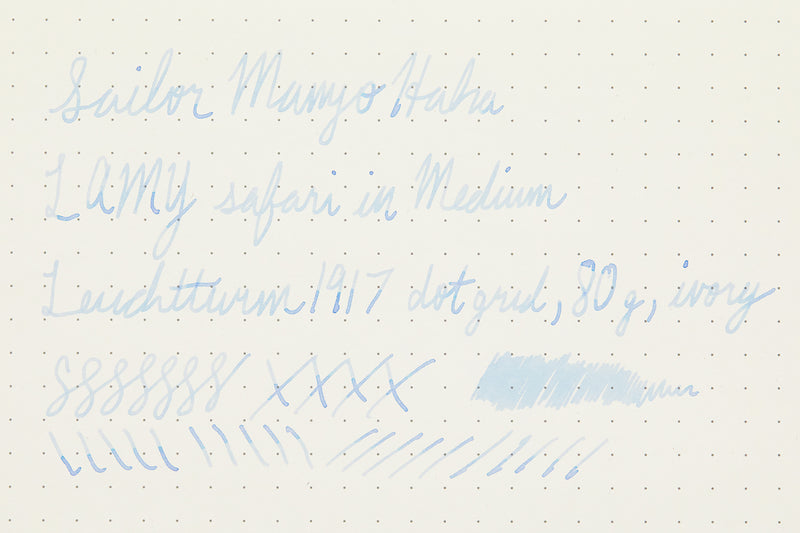 Sailor Manyo Haha
LAMY safari in Medium
Leuchtturm 1917 dot grid, 80 g, ivory